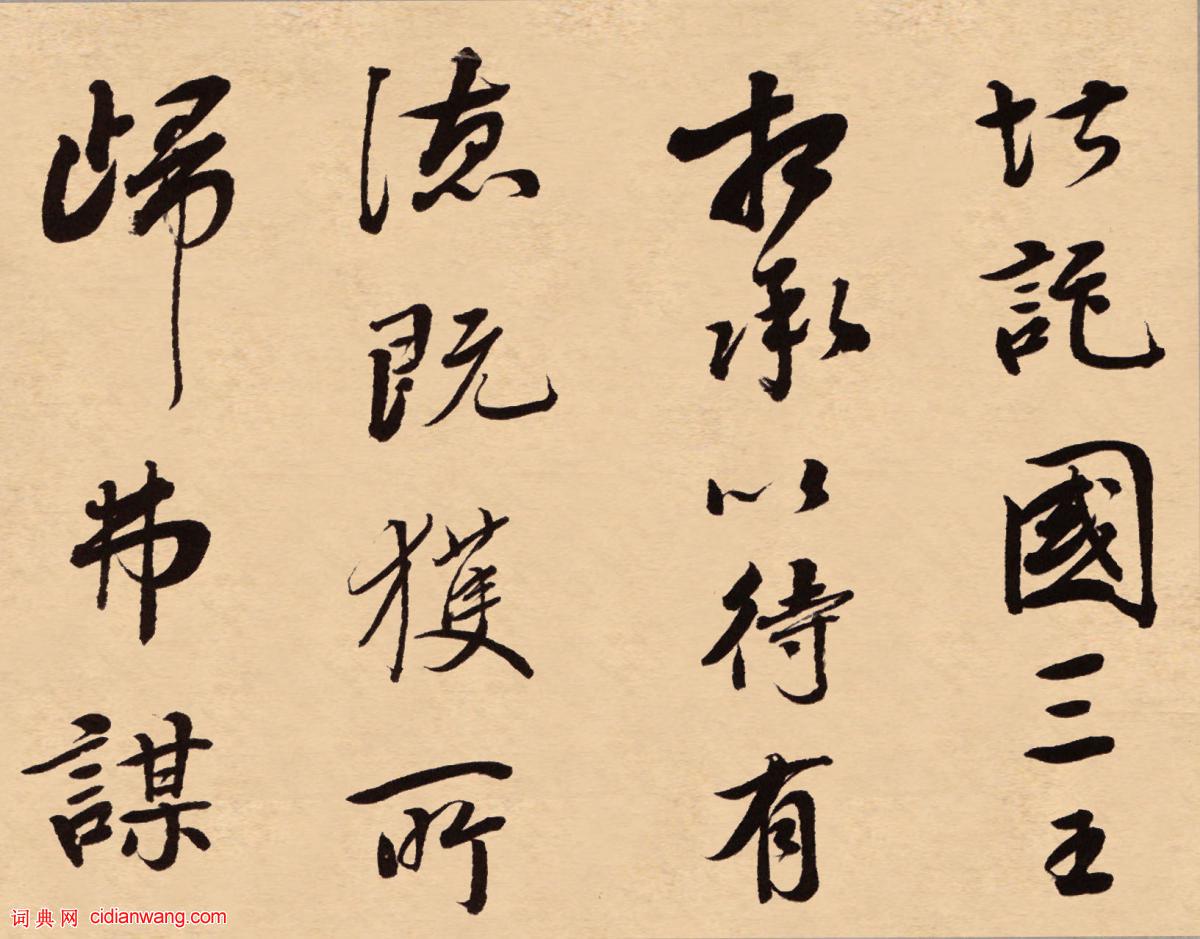 堪託國三王
相承以待有
德既獲所
歸弗謀
词典网 cidianwang.com